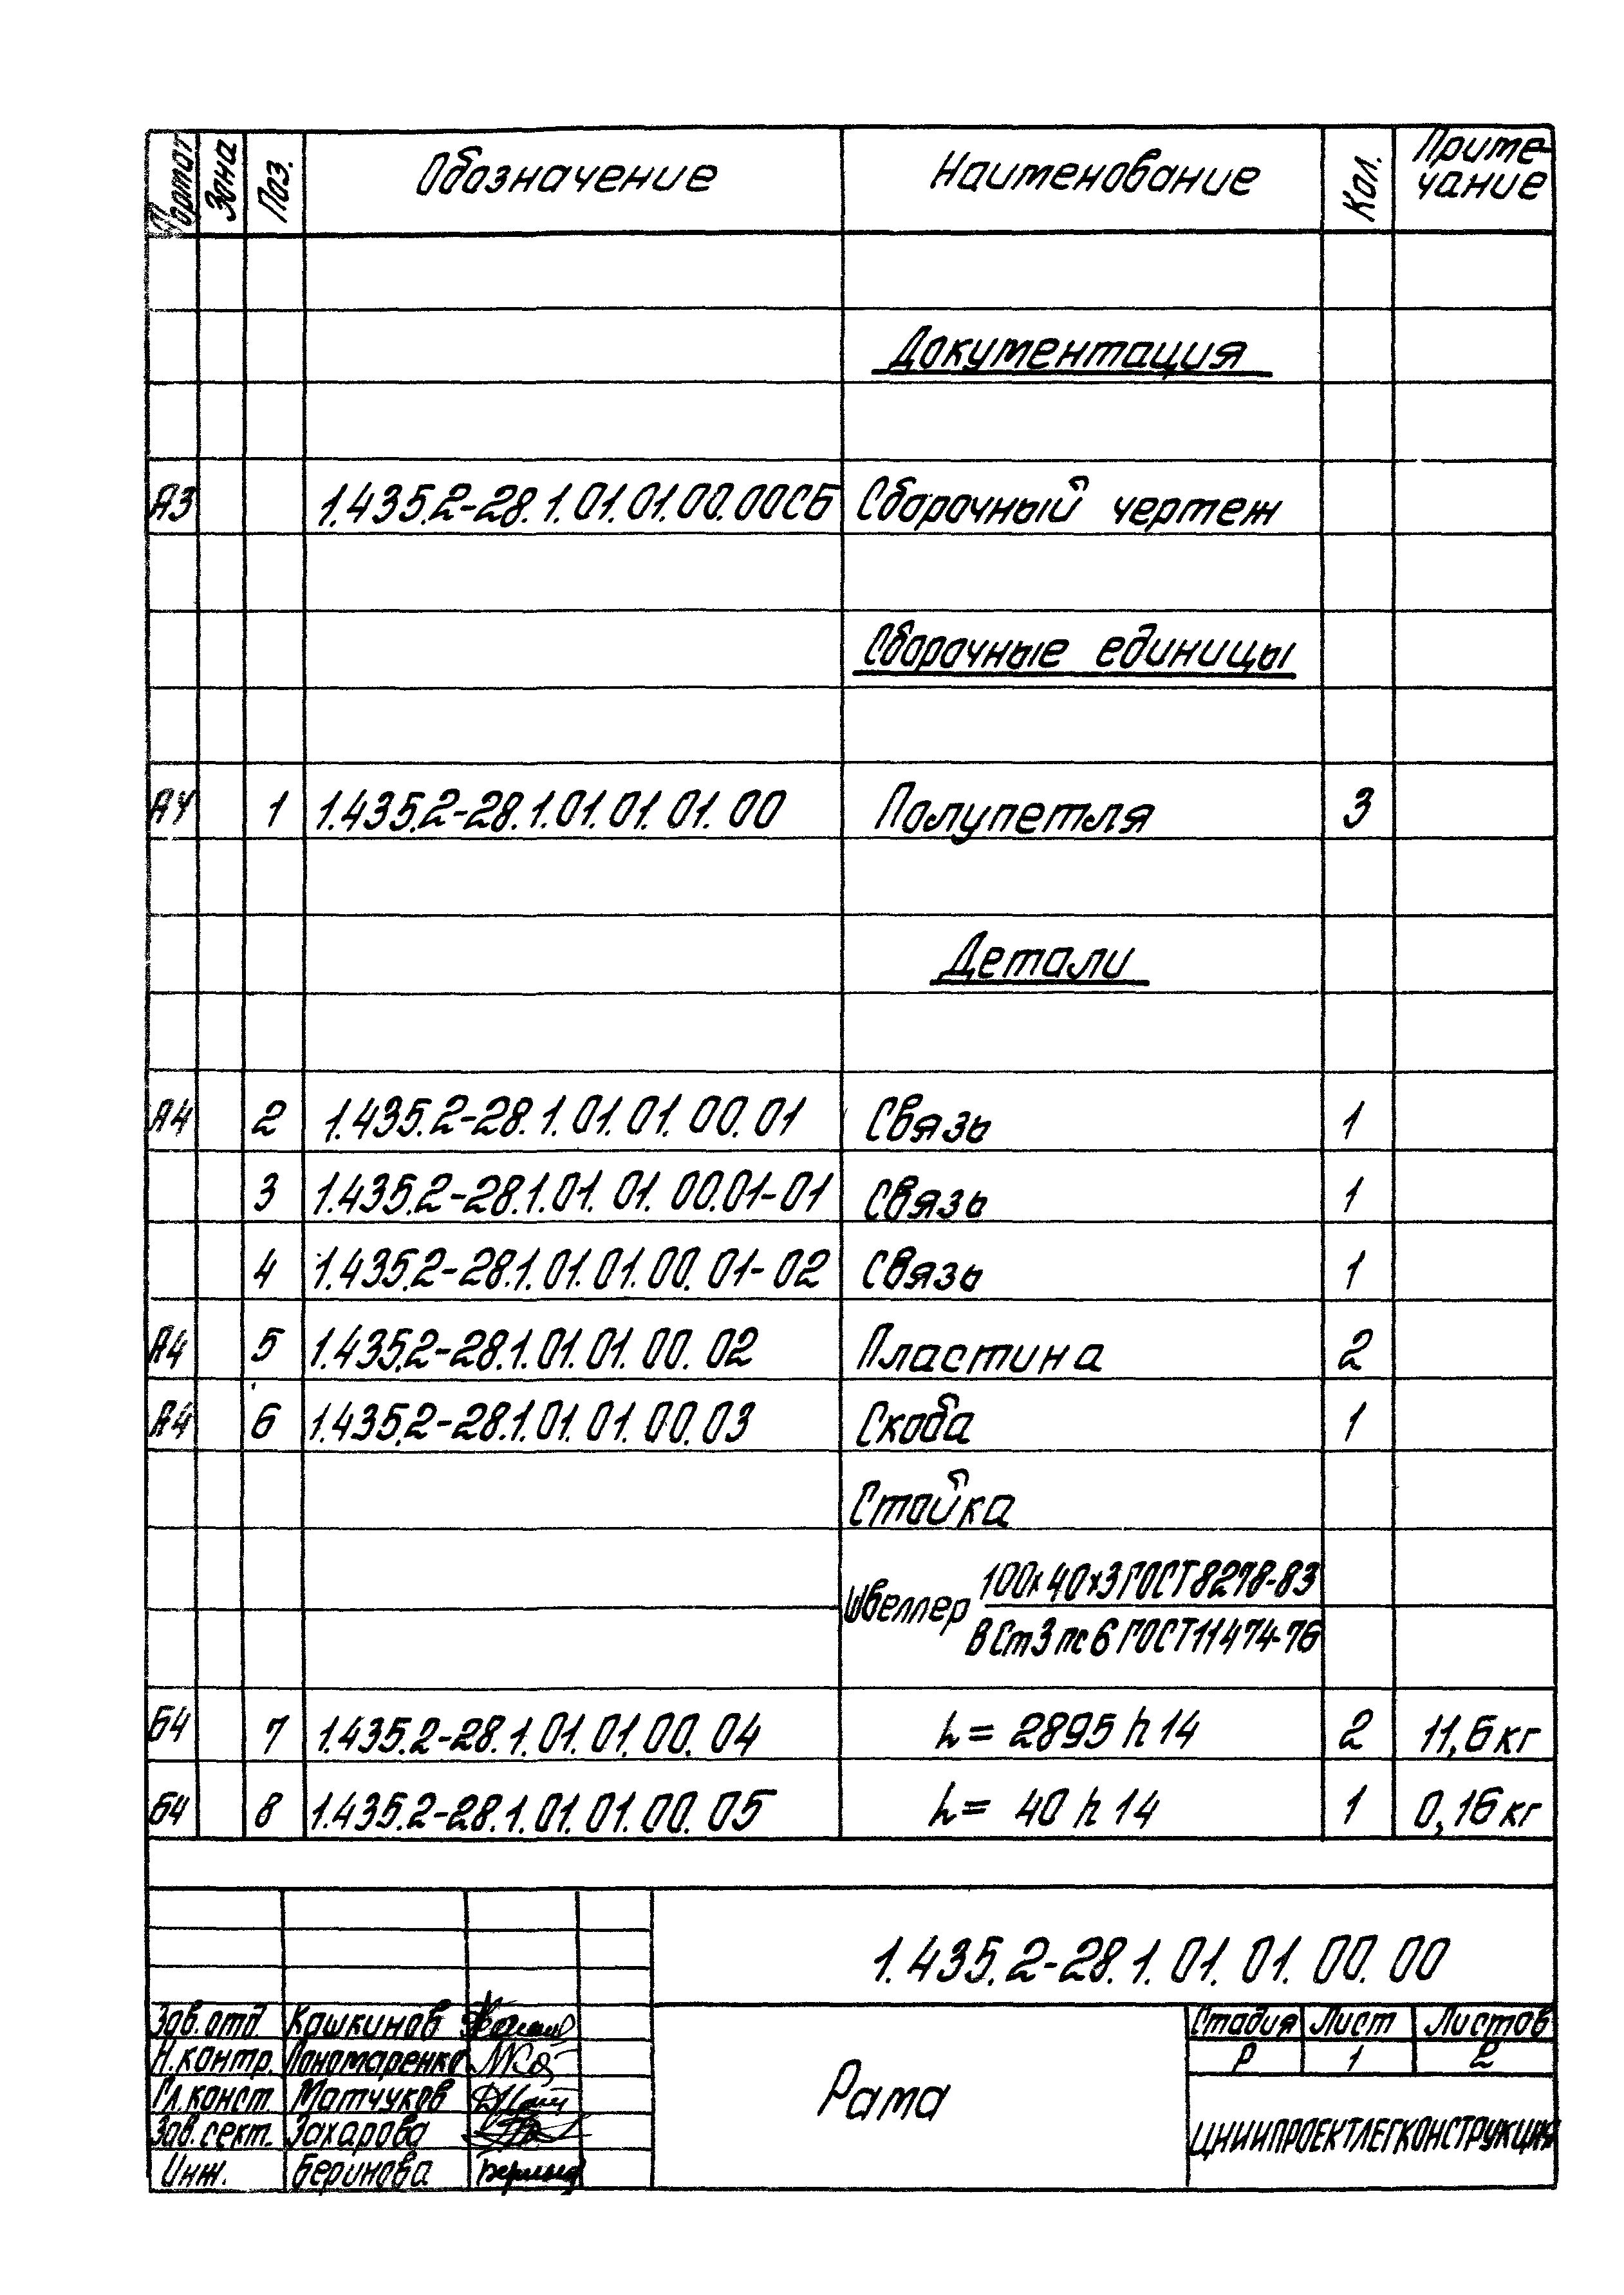 Формат Зона Поз. Обозначение Наименование Кол. Приме-
чание
Документация
А3 1.435.2-28.1.01.01.00.00СБ Сборочный чертеж
Сборочные единицы
А4 1 1.435.2-28.1.01.01.01.00 Полупетля 3
Детали
А4 2 1.435.2-28.1.01.01.00.01 Связь 1
3 1.435.2-28.1.01.01.00.01-01 Связь 1
4 1.435.2-28.1.01.01.00.01-02 Связь 1
А4 5 1.435.2-28.1.01.01.00.02 Пластина 2
А4 6 1.435.2-28.1.01.01.00.03 Скоба 1
Стойка
Швеллер 100х40х3 ГОСТ 8278-83
В Ст3 пс 6 ГОСТ 11474-76
Б4 7 1.435.2-28.1.01.01.00.04 L= 2895 h 14 2 11,6 кг
Б4 8 1.435.2-28.1.01.01.00.05 L= 40 h 14 1 0,16 кг
1.435.2-28.1.01.01.00.00
Зав. отд. Кашкинов
Н.контр. Пономаренко
Гл.конст. Матчуков
Зав. сект. Захарова
Инж. Беринова
Рама
Стадия Лист Листов
Р 1 2
ЦНИИПРОЕКТЛЕГКОНСТРУКЦИЯ